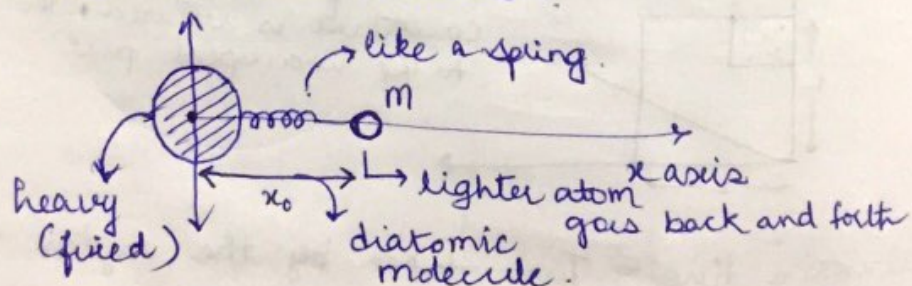 like a spring.
m
x axis
heavy
(fixed)
x₀
lighter atom
goes back and forth
diatomic
molecule.